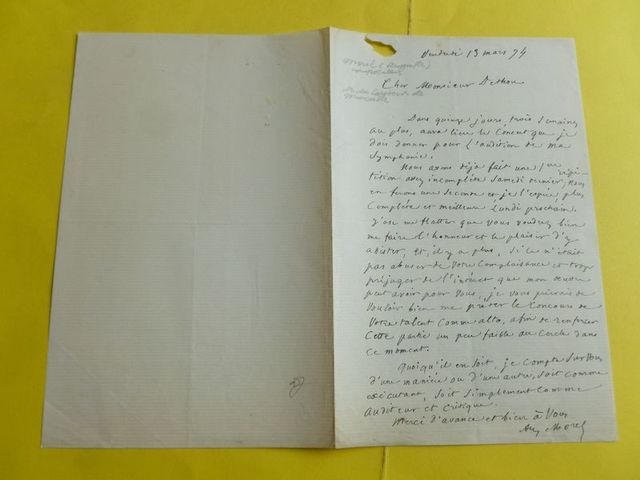 Vendredi 13 mars 74
Morel (Auguste)
compositeur
de
Marseille
Cher Monsieur
Dans quinze jours, trois semaines
au plus, aura lieu le Concert que je
dois donner pour l'audition de ma
Symphonie.
Nous avons déjà fait une 1re répé-
tition assez incomplète Samedi dernier; nous
en ferons une seconde et je l'espère, plus
Complète et meilleure Lundi prochain.
J'ose me flatter que vous voudrez bien
me faire l'honneur et le plaisir d'y
assister; Et, il y a plus, Si ce n'était
pas abuser de Votre Complaisance et trop
préjuger de l'intérêt que mon œuvre
peut avoir pour Vous, je vous prierais de
Vouloir bien me prêter le Concours de
Votre talent Comme alto, afin de renforcer
Cette partie un peu faible au Cercle dans
ce moment.
Quoiqu'il en Soit, je Compte Sur Vous
d'une manière ou d'une autre, Soit comme
exécutant, Soit Simplement Comme
Auditeur et Critique.
Merci d'avance et bien à Vous
Aug Morel